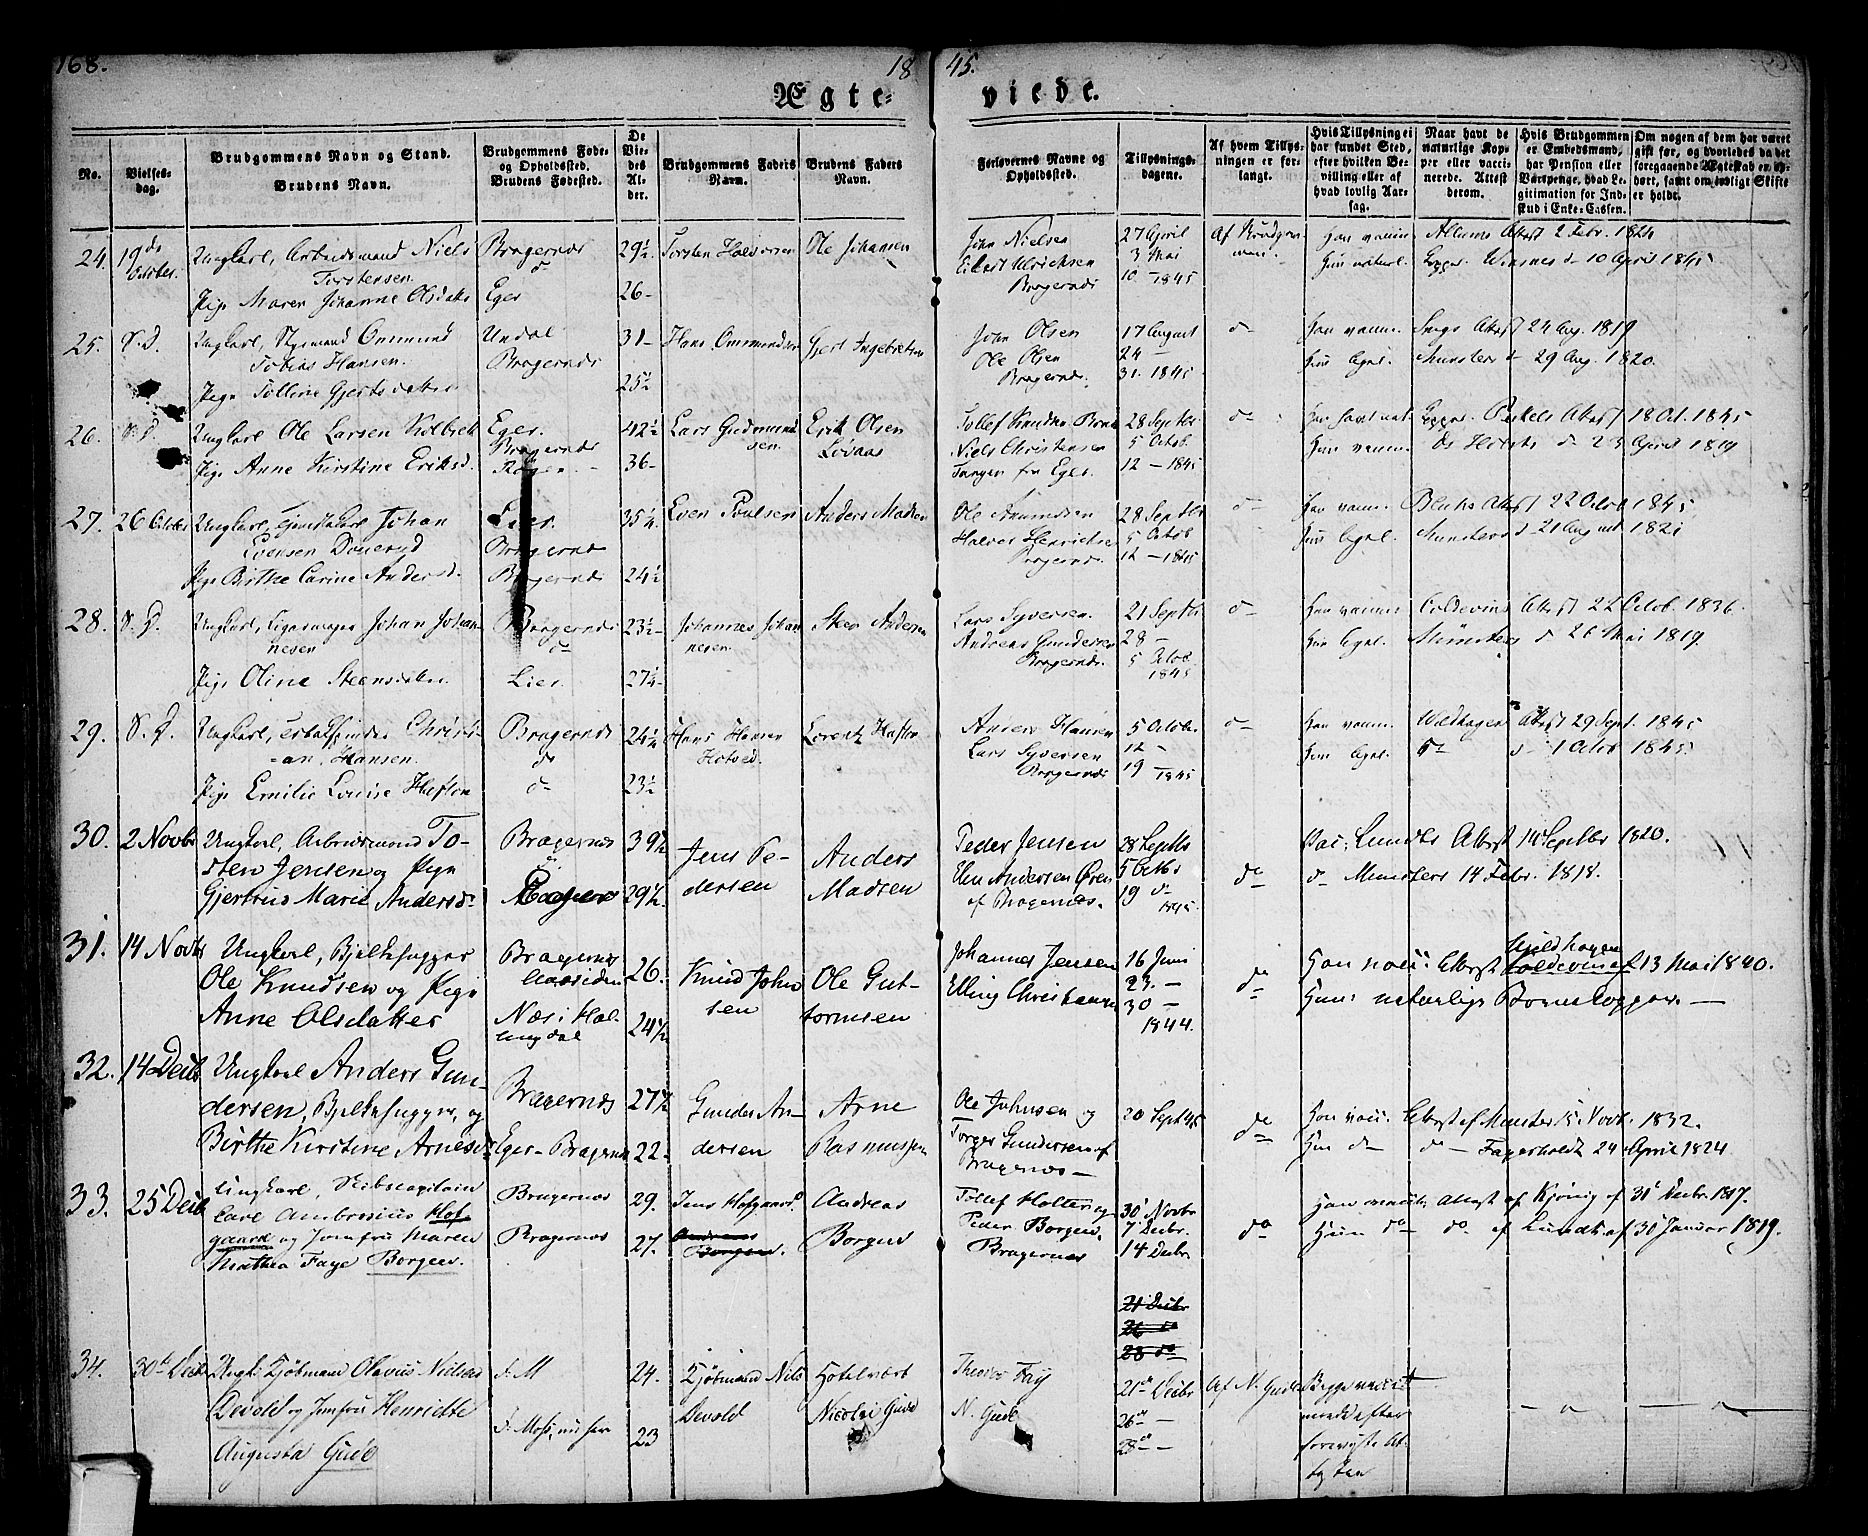 168.
18
45.
Ægte-
viede.
No.
Vielses-
dag.
Brudgommens Navn og Stand.
Brudens Navn.
Brudgommens Føde-
og Opholdssted.
Brudens Fødested.
De
Vie-
des
Al-
der.
Brudgommens Faders
Navn.
Brudens Faders
Navn.
Forlovernes Navne og
Opholdssted.
Tillysnings-
dagene.
Af hvem Tillys-
ningen er for-
langt.
Hvis Tillysning ei
har fundet Sted,
efter hvilken Be-
villing eller af
hvad lovlig Aar-
sag.
Naar havt de
naturlige Kop-
per eller vacci-
nerede. Attest
derom.
Hvis Brudgommen
er Embedsmand,
har Pension eller
Vartpenge, hvad Le-
gitimation for Ind-
skud i Enke-Cassen.
Om nogen af dem har været
gift før, og hvorledes da det
foregaaende Ægteskab er op-
hørt, samt om lovligt Skifte
er holdt.
24. 19de October. Ungkarl, Arbeidsmand Niels
Torstensen
Pige Maren Johanne Olsdatter
Bragernæs
do
Eger
29½
26-
Torsten Halvorsen
Ole Johansen
John Nielsen
Eilert Ulrichsen
Bragernæs
27 April
3 Mai
10 - 1845
Af Brudgom-
men.
Han vaccin. Attest 2 Febr. 1824
Hun naturl. Kopper. d 10 April 1845
25. S. D. Ungkarl, Ommund
Tobias Hansen.
Pige Tolline Gjertsdatter
Undal
Bragernæs
31-
25½
Hans Ommundsen
Gjert Ingebretsen
John Olsen
Ole Olsen
Bragernæs.
17 August
24 -
31. 1845
do
Han vaccin. Attest 24 Aug. 1819
Hun ligel. Munsters d 29 Aug. 1820.
26. S. D. Ungkarl Ole Larsen Kolbræk
Pige Anne Kirstine Eriksd.
Eger.
Bragernæs
Røgen
42½
36-
Lars Gudmund
sen.
Erik Olsen
Løvaas
Tollef Knudsen
Niels Christensen
Eger.
28 Septbr
5 Octob.
12 - 1845
do
Han havt nat. Kopper. Attest 18 Oct. 1845
Hun vaccin. d 23 April 1819
27. 26 October Ungkarl, Tjenstekarl Johan
Evensen
Pige Birthe Carine Andersd.
Lier.
Bragernæs
Bragernæs
35¼
24½
Even Poulsen
Anders Madsen
Ole Amundsen
Halvor Henriksen
Bragernæs.
28 Septbr
5 Octob
12 - 1845
do
Han vaccin. Attest 22 Octob 1845
Hun ligel. Munsters d 21 August 1821
28. S. D. Ungkarl, Johan Johan-
nesen
Pige Oline Steensdatter
Bragernæs
do
Lier.
23½
27¼
Johannes Johan
nesen.
Steen Andersen
Lars Syversen.
Andreas Gundersen
Bragernæs.
21 Septbr
28 -
5 Octob
1845
do
Han vaccin. Coldevins Attest 22 Octob. 1836.
Hun ligel. Münsters d 26 Mai 1819.
29. S. D. Ungkarl, Christi-
an, Hansen.
Pige Emilie Louise Hafton
Bragernæs
do
do
24¼
23½
Hans Hansen
Hotved.
Lorentz Hafton
Anders Hansen
Lars Syversen
Bragernæs
5 October
12 -
19 - 1845
do
Han vaccin. Wildhagen Attest 29 Sept. 1845
Hun ligel. do d 1 Octob 1845.
30. 2 Novbr Ungkarl, Arbeidsmand To-
sten Jensen og Pige
Gjertrud Marie Andersdr
Bragernæs
39½
29½
Jens Pe-
dersen
Anders
Madsen
Peder Jensen
Andersen Øren
af Bragernæs.
28 Septbr
5 Octbr
19 do
1845.
do
Vac: Lundts Attest 14 Septbr 1820.
do Munsters 14 Febr. 1818.
31. 14 Novbr Ungkarl, Bjelkehugger
Ole Knudsen og Pige
Anne Olsdatter
Bragernæs
Næs i Hal-
lingdal
26.
24½
Knud John
sen
Ole Gut-
tormsen
Johannes Jensen
Elling Christiansen
16 Juni
23. -
30 -
1844.
do
Wildhagen
Han vacc: Attest Coldevin af 13 Mai 1840.
Hun: naturlige Børnekopper. -
32. 14 Decbr Ungkarl Anders Gun-
dersen, Bjelkehugger, og
Birthe Kirstine Arnesdr
Bragernæs
Eger - Bragernæs
27½
22-
Gunder An-
dersen
Arne
Rasmussen
Ole Johnsen og
Torger Gundersen af
Bragernæs -
20 Sept 45
do
Han vacc: Attest af Munster 15 Novb. 1832.
Hun do - do - Fagerholdt 24 April 1824
33. 25 Decbr Ungkarl, Skibscapitain
Carl Ambrosius Hof-
gaard og Jomfru Maren
Mathea Faye Borgen.
Bragernæs
Bragernæs
29.
27.
Jens Hofgaard
Andreas
Borgen.
Andreas
Borgen
Tollef Holter og
Peder Borgen.
Bragernæs
30 Novbr
7 Decbr.
14 Decbr
do
Han vacci: Attest af Kjønig af 31 Decbr. 1817.
Hun do do af Lundt af 30 Januar 1819.
21 Decbr
26 do
28 do
34. 30te Decbr Ungk. Kjøbmand Olavus Nielsen
Devold og Jomfru Henriette
Augusta Gude
f. M
f. Moss, nu her
24.
23
Kjøbmand Nils
Devold
Hotelvært
Nicolai Gude
Theodor Fay
N. Gude
21de Decbr
26de -
28de -
Af N. Gude
Begge vaccine-
rede efter
foreviste At-
tester